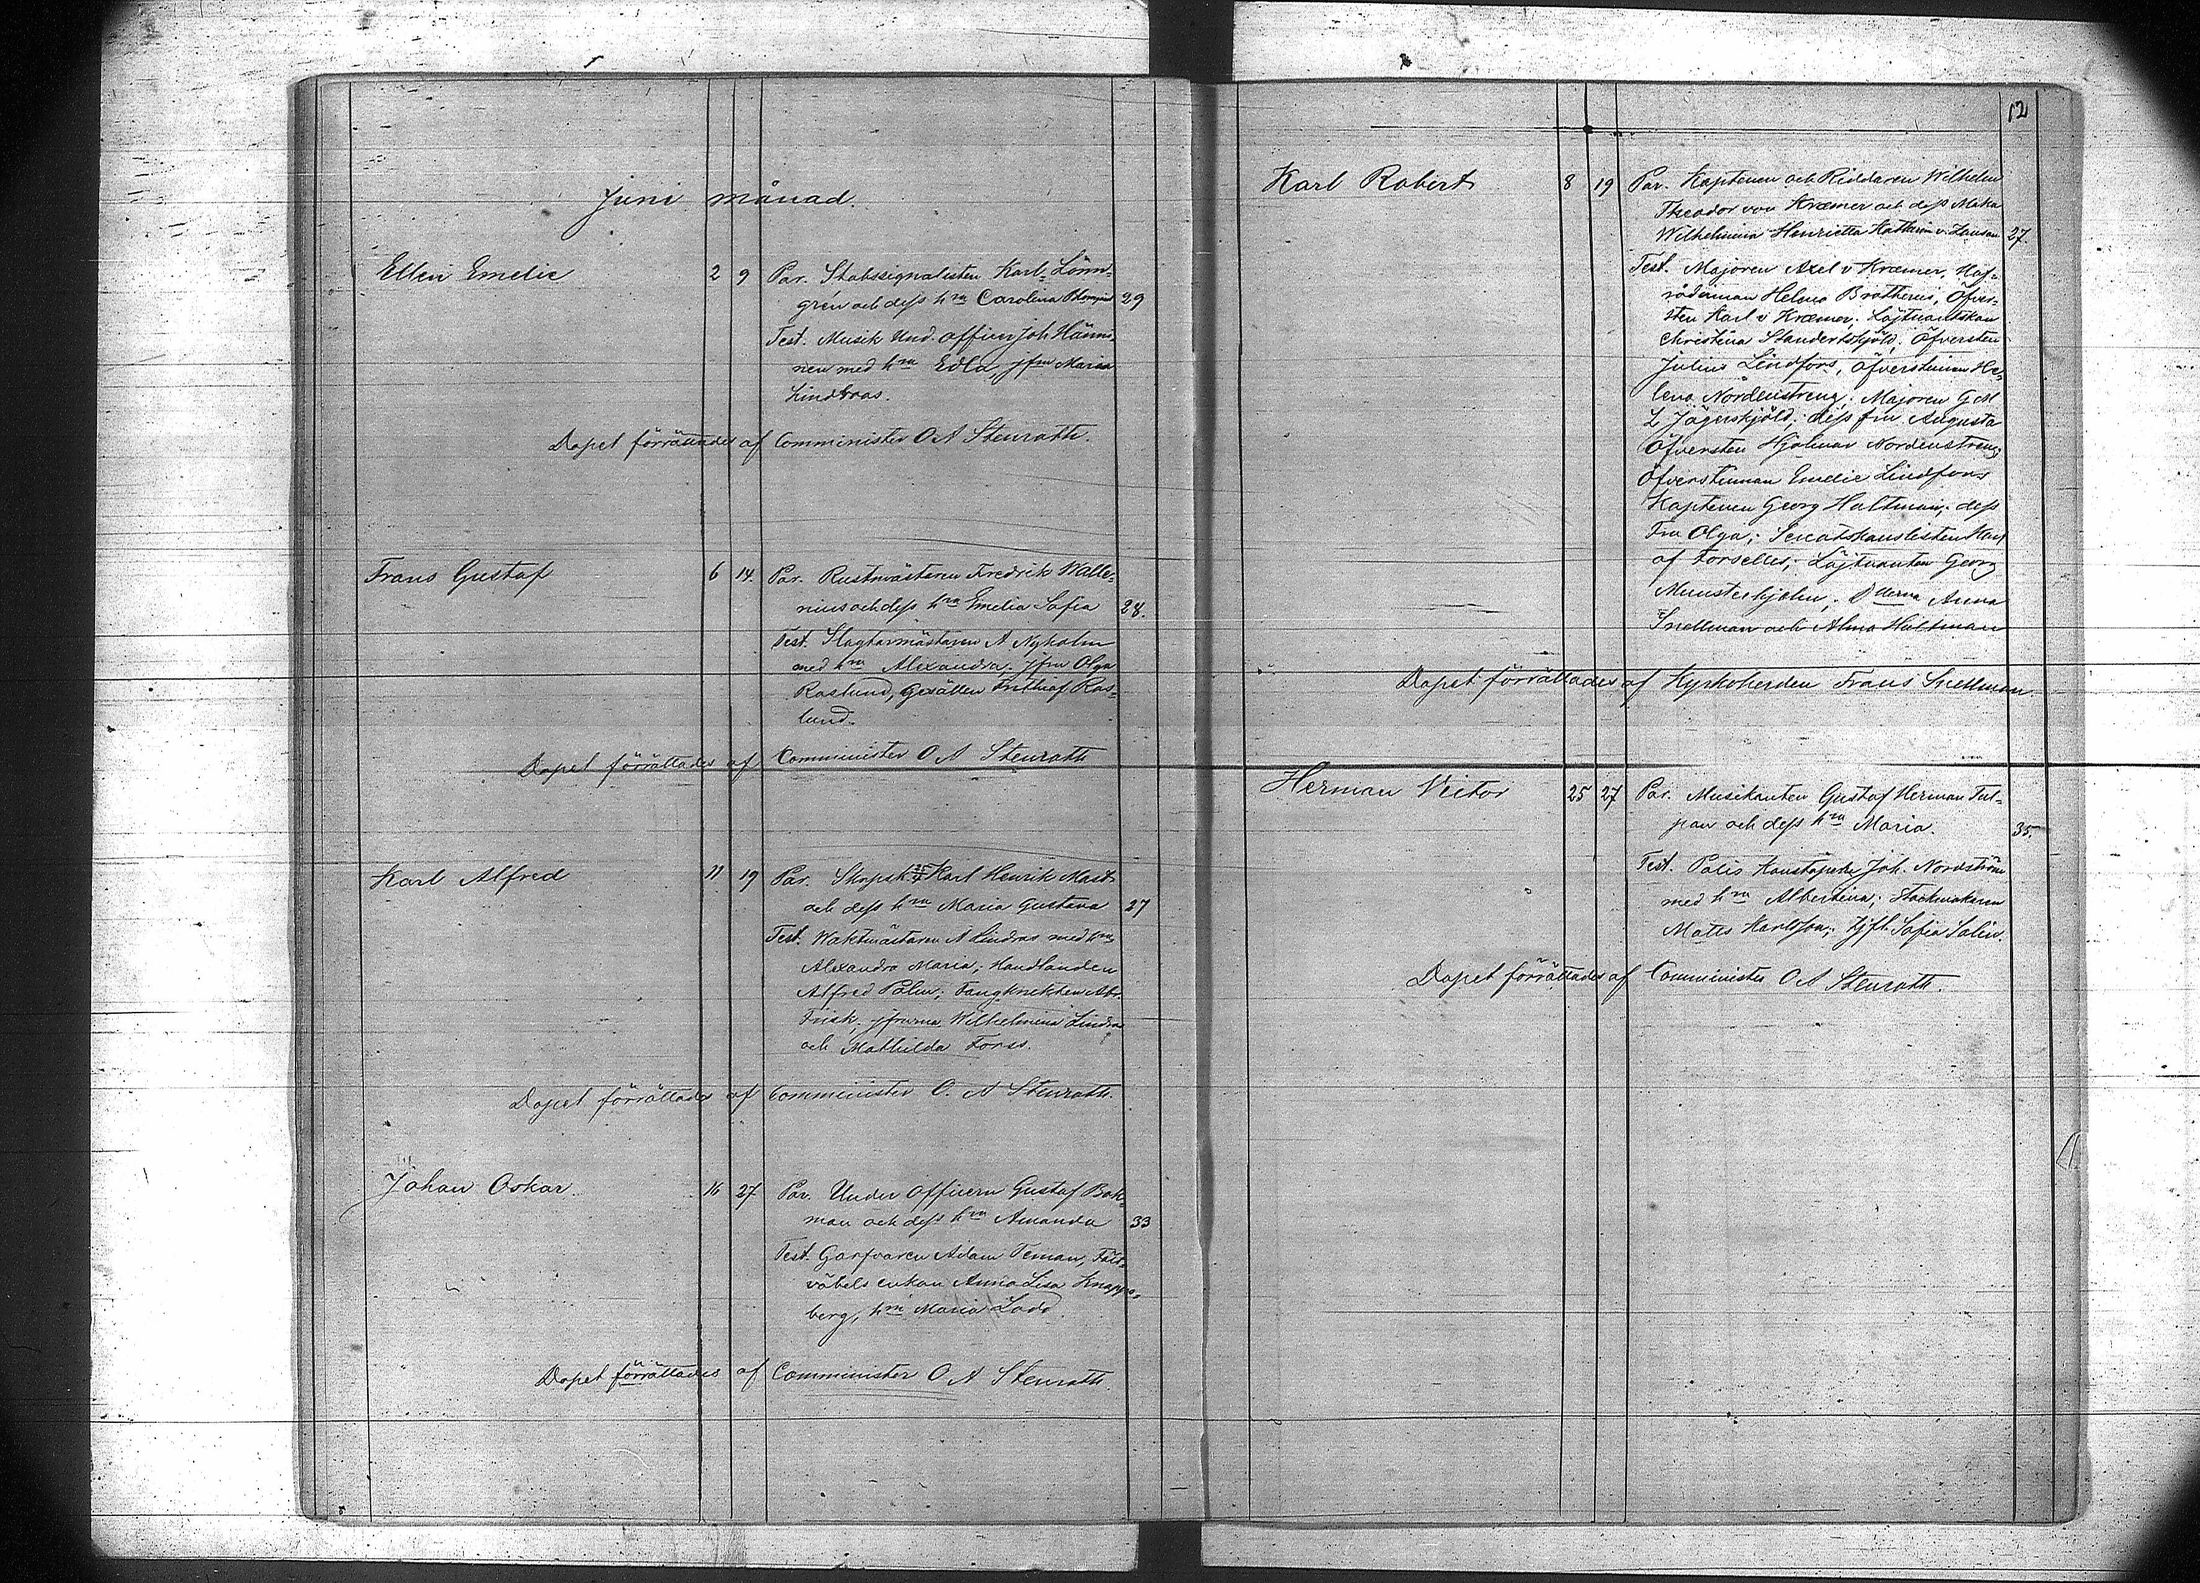 Juni månad.
Ellen Emelie 2 9 Par. Stabssignalisten Karl Lönn-
gren och dess hu Carolina 29
Test. Musik Und. officer Joh Hänni-
nen med hu Edla, jfru Maria
Lindroos.
Dopet förrättades af Comminister O A Stenroth.
Frans Gustaf 6 14. Par. Rustmästaren Fredrik Walle-
nius och dess hu Emelia Sofia 28.
Test. Slagtarmästaren A Nyholm
med hu Alexandra. jfru Olga
Roslund, Gesällen Frithiof Ros-
lund.
Dopet förrättades af Comminister O A Stenroth
Karl Alfred 11 19 Par. Karl Henrik Mast
och dess hu Maria Gustava 27
Test. Waktmästaren A Lindros med hu
Alexandra Maria; Handlanden
Alfred Palm; Fångknekten Abr.
Frisk. jfrurna Wilhelmina Lindros
och Mathilda Forss.
Dopet förrättades af Comminister O. A Stenroth.
Johan Oskar. 16 27 Par. Under officern Gustaf Bok-
man och dess hu Amanda 33
Test. Garfvaren Adam Teman, Fält-
väbels enkan Anna Lisa Knappe-
berg, hu Maria Ladd.
Dopet förrättades af Comminister O A Stenroth.
12
Karl Robert 8 19 Par. Kaptenen och Riddaren Wilhelm
Theodor von Kræmer och dess Maka
Wilhelmina Henrietta Katharin v. 27.
Test. Majoren Axel v Kræmer, Hof-
rådinnan Helena Brotherus, Öfver-
sten Karl v Kræmer; Löjtnantskan
Christina Standertskjöld; Öfversten
Julius Lindfors, Öfverstinnan He-
lena Nordenstreng; Majoren G M
L Jägerskjöld; dess fru Augusta
Öfversten Hjalmar Nordenstreng;
Öfverstinnan Emelie Lindfors
Kaptenen Georg Hultman; dess
Fru Olga; Senatskanslisten Karl
af Forselles; Löjtnanten Georg
Munsterhjelm; Anna
Snellman och Alma Hultman
Dopet förrättades af Kyrkoherden Frans Snellman.
Herman Victor 25 27 Par. Musikanten Gustaf Herman Tul-
pan och dess hu Maria. 35.
Test. Polis Konstapeln Joh. Nordström
med hu Albertina; Stockmakaren
Mats Karlsson; Sofia Salin.
Dopet förrättades af Comminister O A Stenroth.